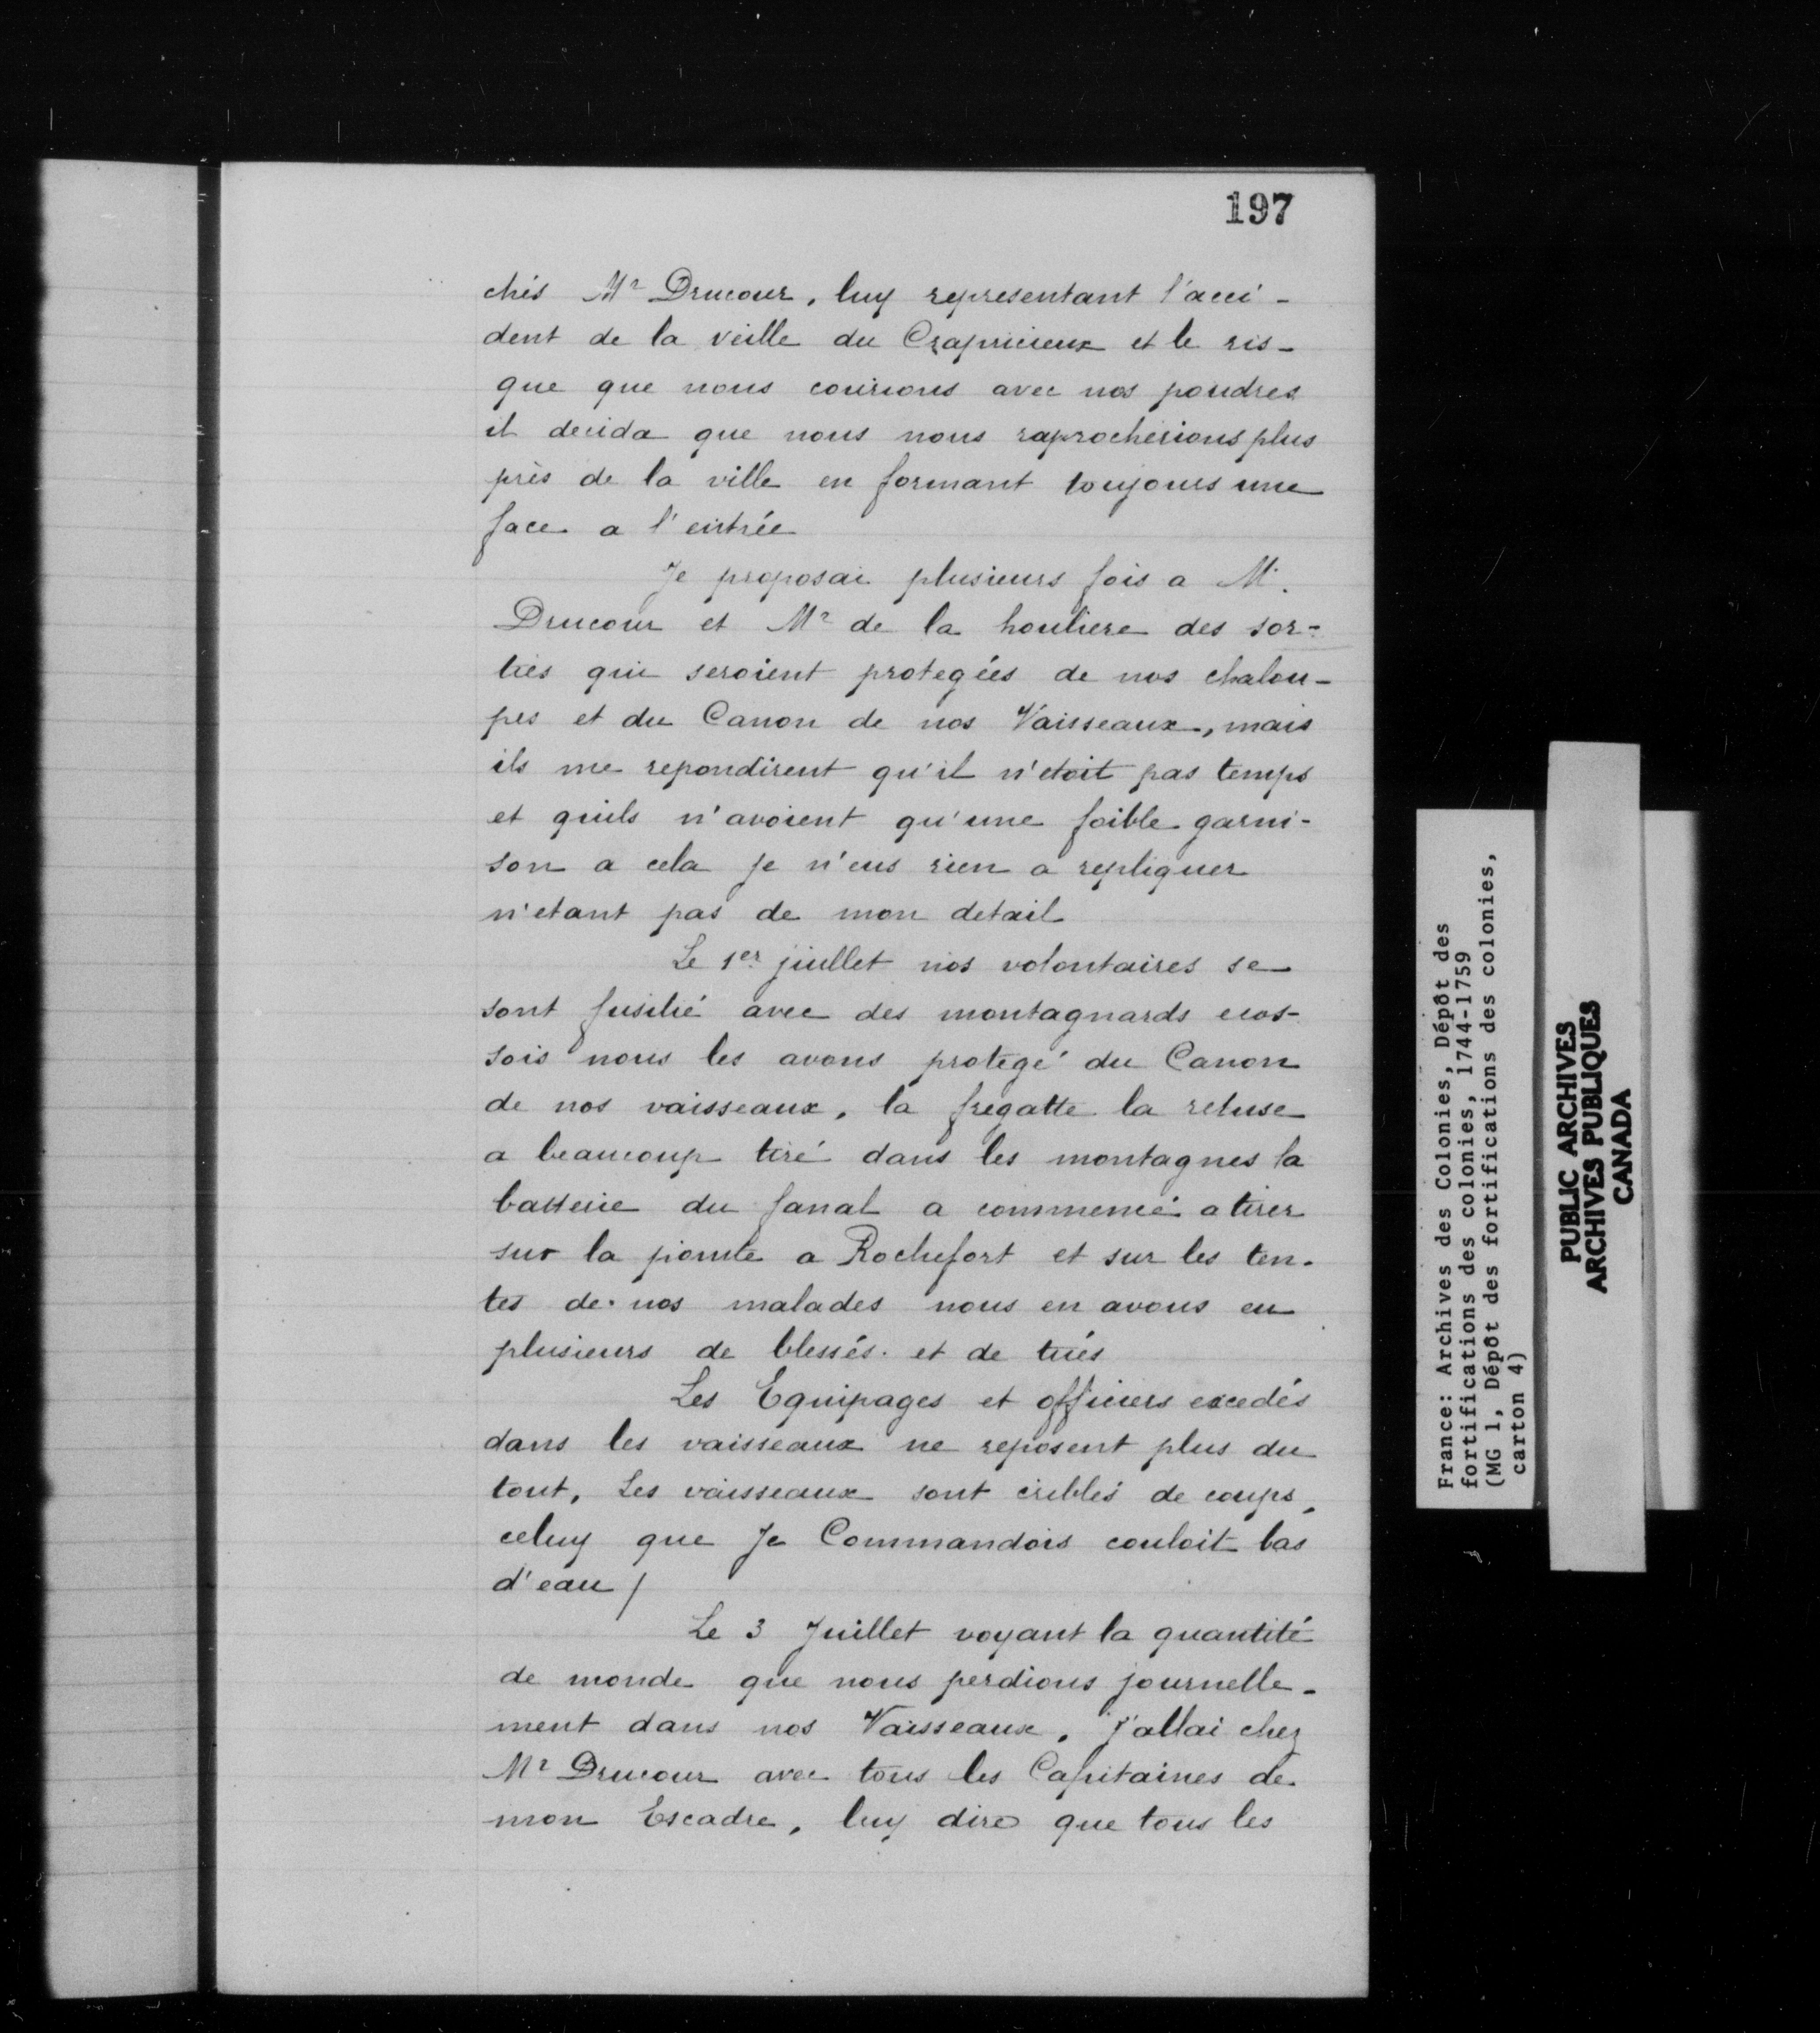 197
chés Mr Drucour, luy representant l'acci-
dent de la veille du Crapricieux et le ris-
que que nous courions avec nos poudres
il decida que nous nous raprocherions plus
près de la ville en formant toujours une
face a l'entrée
Je proposai plusieurs fois a M.
Drucour et Mr de la houliere des sor-
ties qui seroient protegées de nos chalou-
pes et du Canon de nos Vaisseaux, mais
ils me repondirent qu'il n'etoit pas temps
et quils n'avoient qu'une foible garni-
son a cela je n'eus rien a repliquer
n'etant pas de mon detail
Le 1er juillet nos volontaires se
sont fusilié avec des montagnards ecos-
sois nous les avons protegé du Canon
de nos vaisseaux, la fregatte la retuse
a beaucoup tiré dans les montagnes la
batterie du fanal a commencé a tirer
sur la pointe a Rochefort et sur les ten-
tes de nos malades nous en avons eu
plusieurs de blessés et de tués
Les Equipages et officiers excedés
dans les vaisseaux ne reposent plus du
tout, Les vaisseaux sont criblés de coups,
celuy que Je Commandois couloit bas
d'eau /
Le 3 Juillet voyant la quantité
de monde que nous perdions journelle-
ment dans nos Vaisseaux, j'allai chez
Mr Drucour avec tous les Capitaines de
mon Escadre, luy dire que tous les
France: Archives des Colonies, Dépôt des
fortifications des colonies, 1744-1759
(MG 1, Dépôt des fortifications des colonies,
carton 4)
PUBLIC ARCHIVES
ARCHIVES PUBLIQUES
CANADA